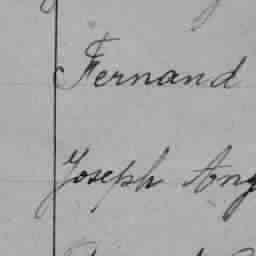 Fernand
Joseph Ang